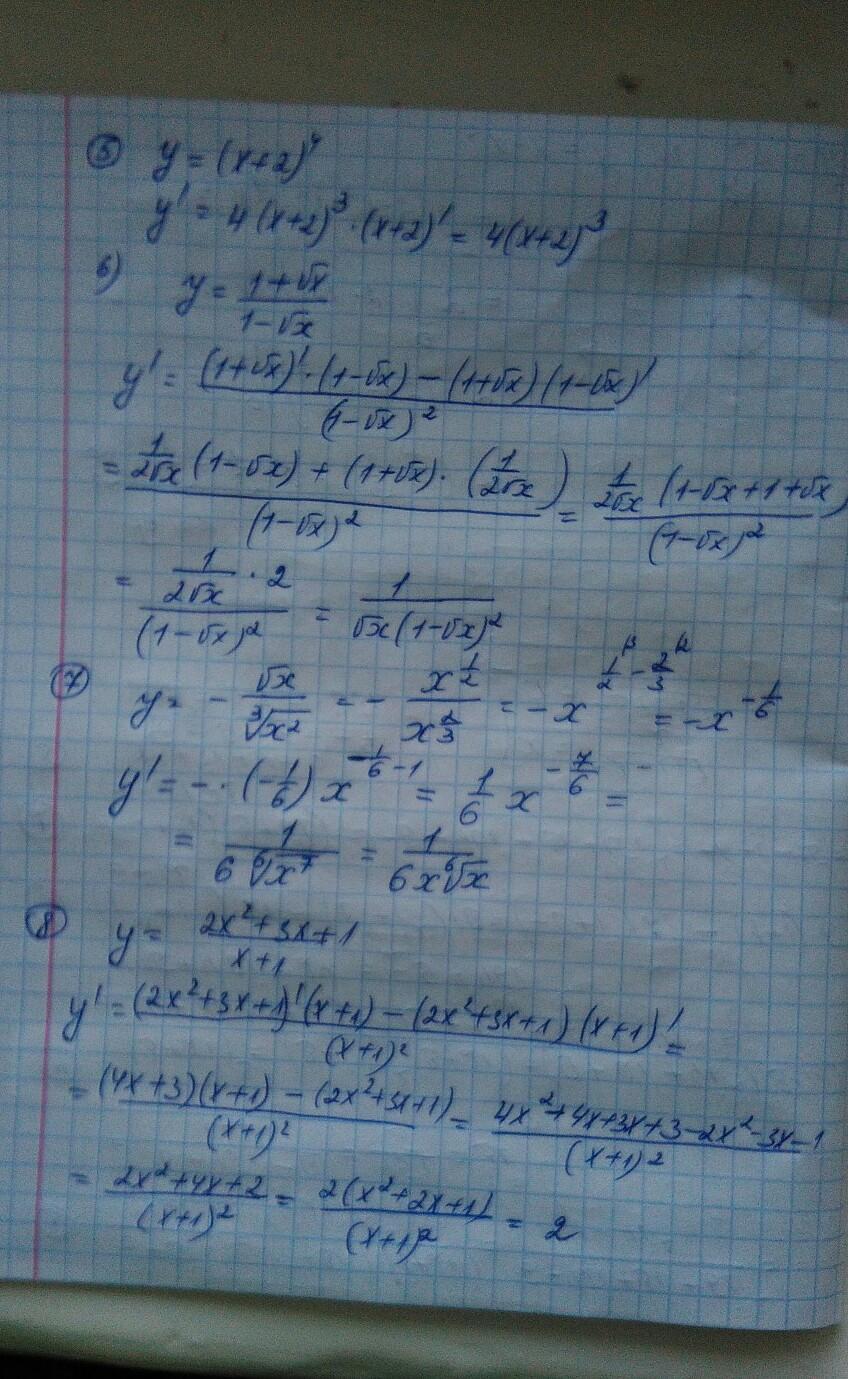 5 y = (x+2)^4
y' = 4(x+2)^3 · (x+2)' = 4(x+2)^3
6) y = (1+√x)/(1-√x)
y' = ((1+√x)' · (1-√x) - (1+√x)(1-√x)')/(1-√x)^2
= (1/(2√x) (1-√x) + (1+√x) · (1/(2√x)))/(1-√x)^2 = (1/(2√x) (1-√x+1+√x)/(1-√x)^2
= (1/(2√x) · 2)/(1-√x)^2 = 1/(√x(1-√x)^2)
7 y = - √x/∛(x^2) = - x^(1/2)/x^(2/3) = -x^(1/2 - 2/3) = -x^(-1/6)
y' = - · (-1/6) x^(-1/6 - 1) = 1/6 x^(-7/6) =
= 1/(6 ⁶√(x^7)) = 1/(6x ⁶√x)
8 y = (2x^2+3x+1)/(x+1)
y' = ((2x^2+3x+1)'(x+1) - (2x^2+3x+1)(x+1)')/(x+1)^2 =
= ((4x+3)(x+1) - (2x^2+3x+1))/(x+1)^2 = (4x^2+4x+3x+3-2x^2-3x-1)/(x+1)^2
= (2x^2+4x+2)/(x+1)^2 = 2(x^2+2x+1)/(x+1)^2 = 2